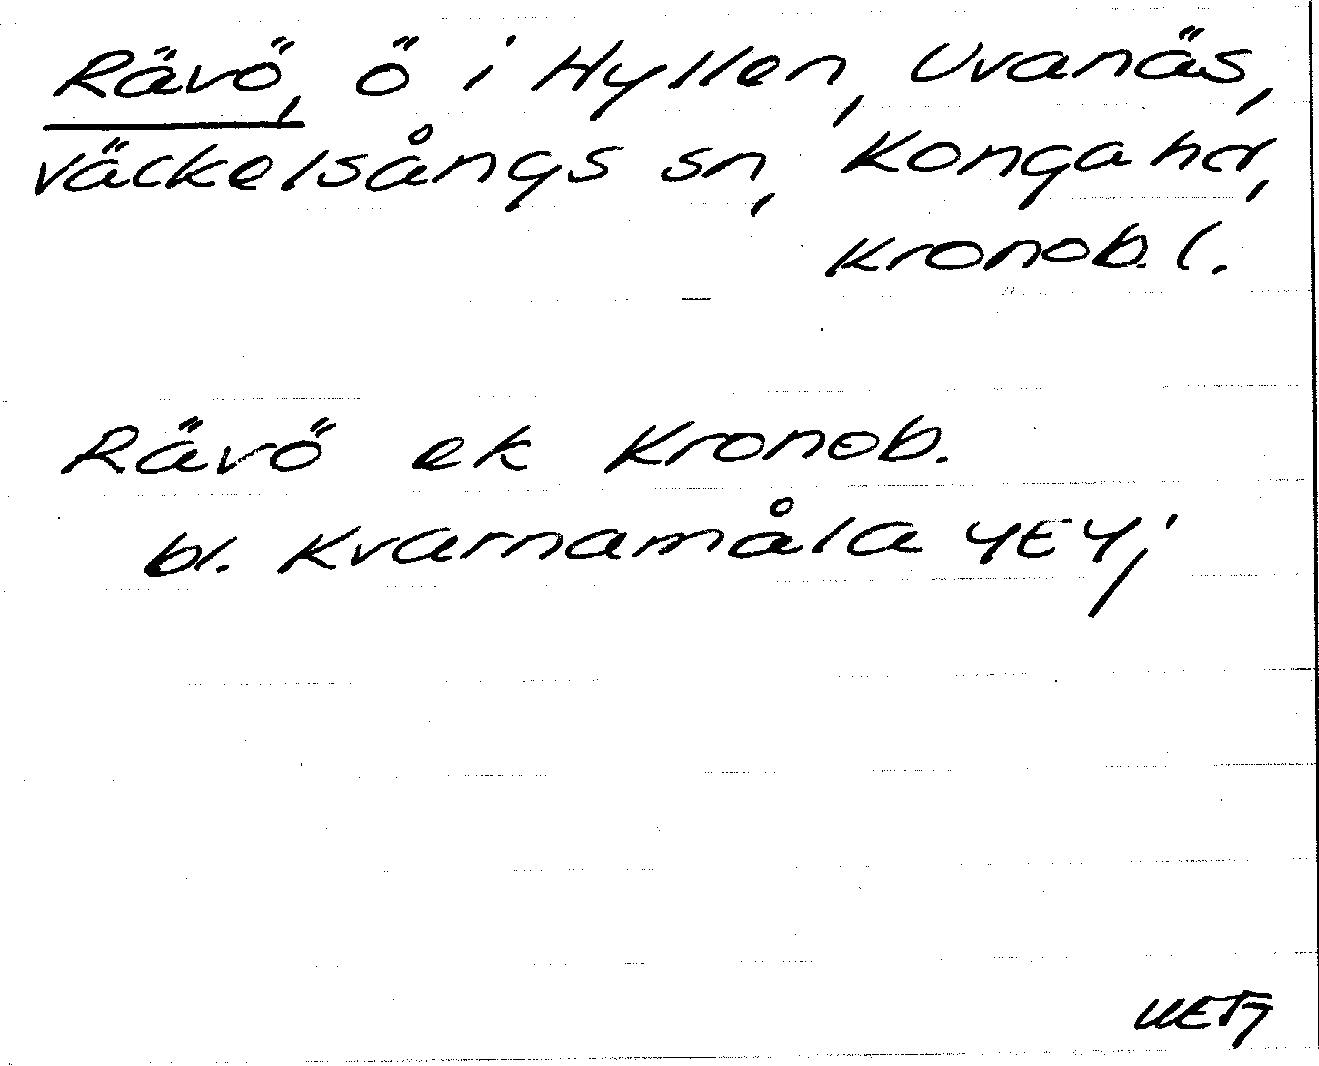 Rävö, ö i Hyllen, Uvanäs,
Väckelsångs sn, Konga hd,
Kronob. l.
Rävö ek Kronob.
bl. Kvarnamåla 4E4j